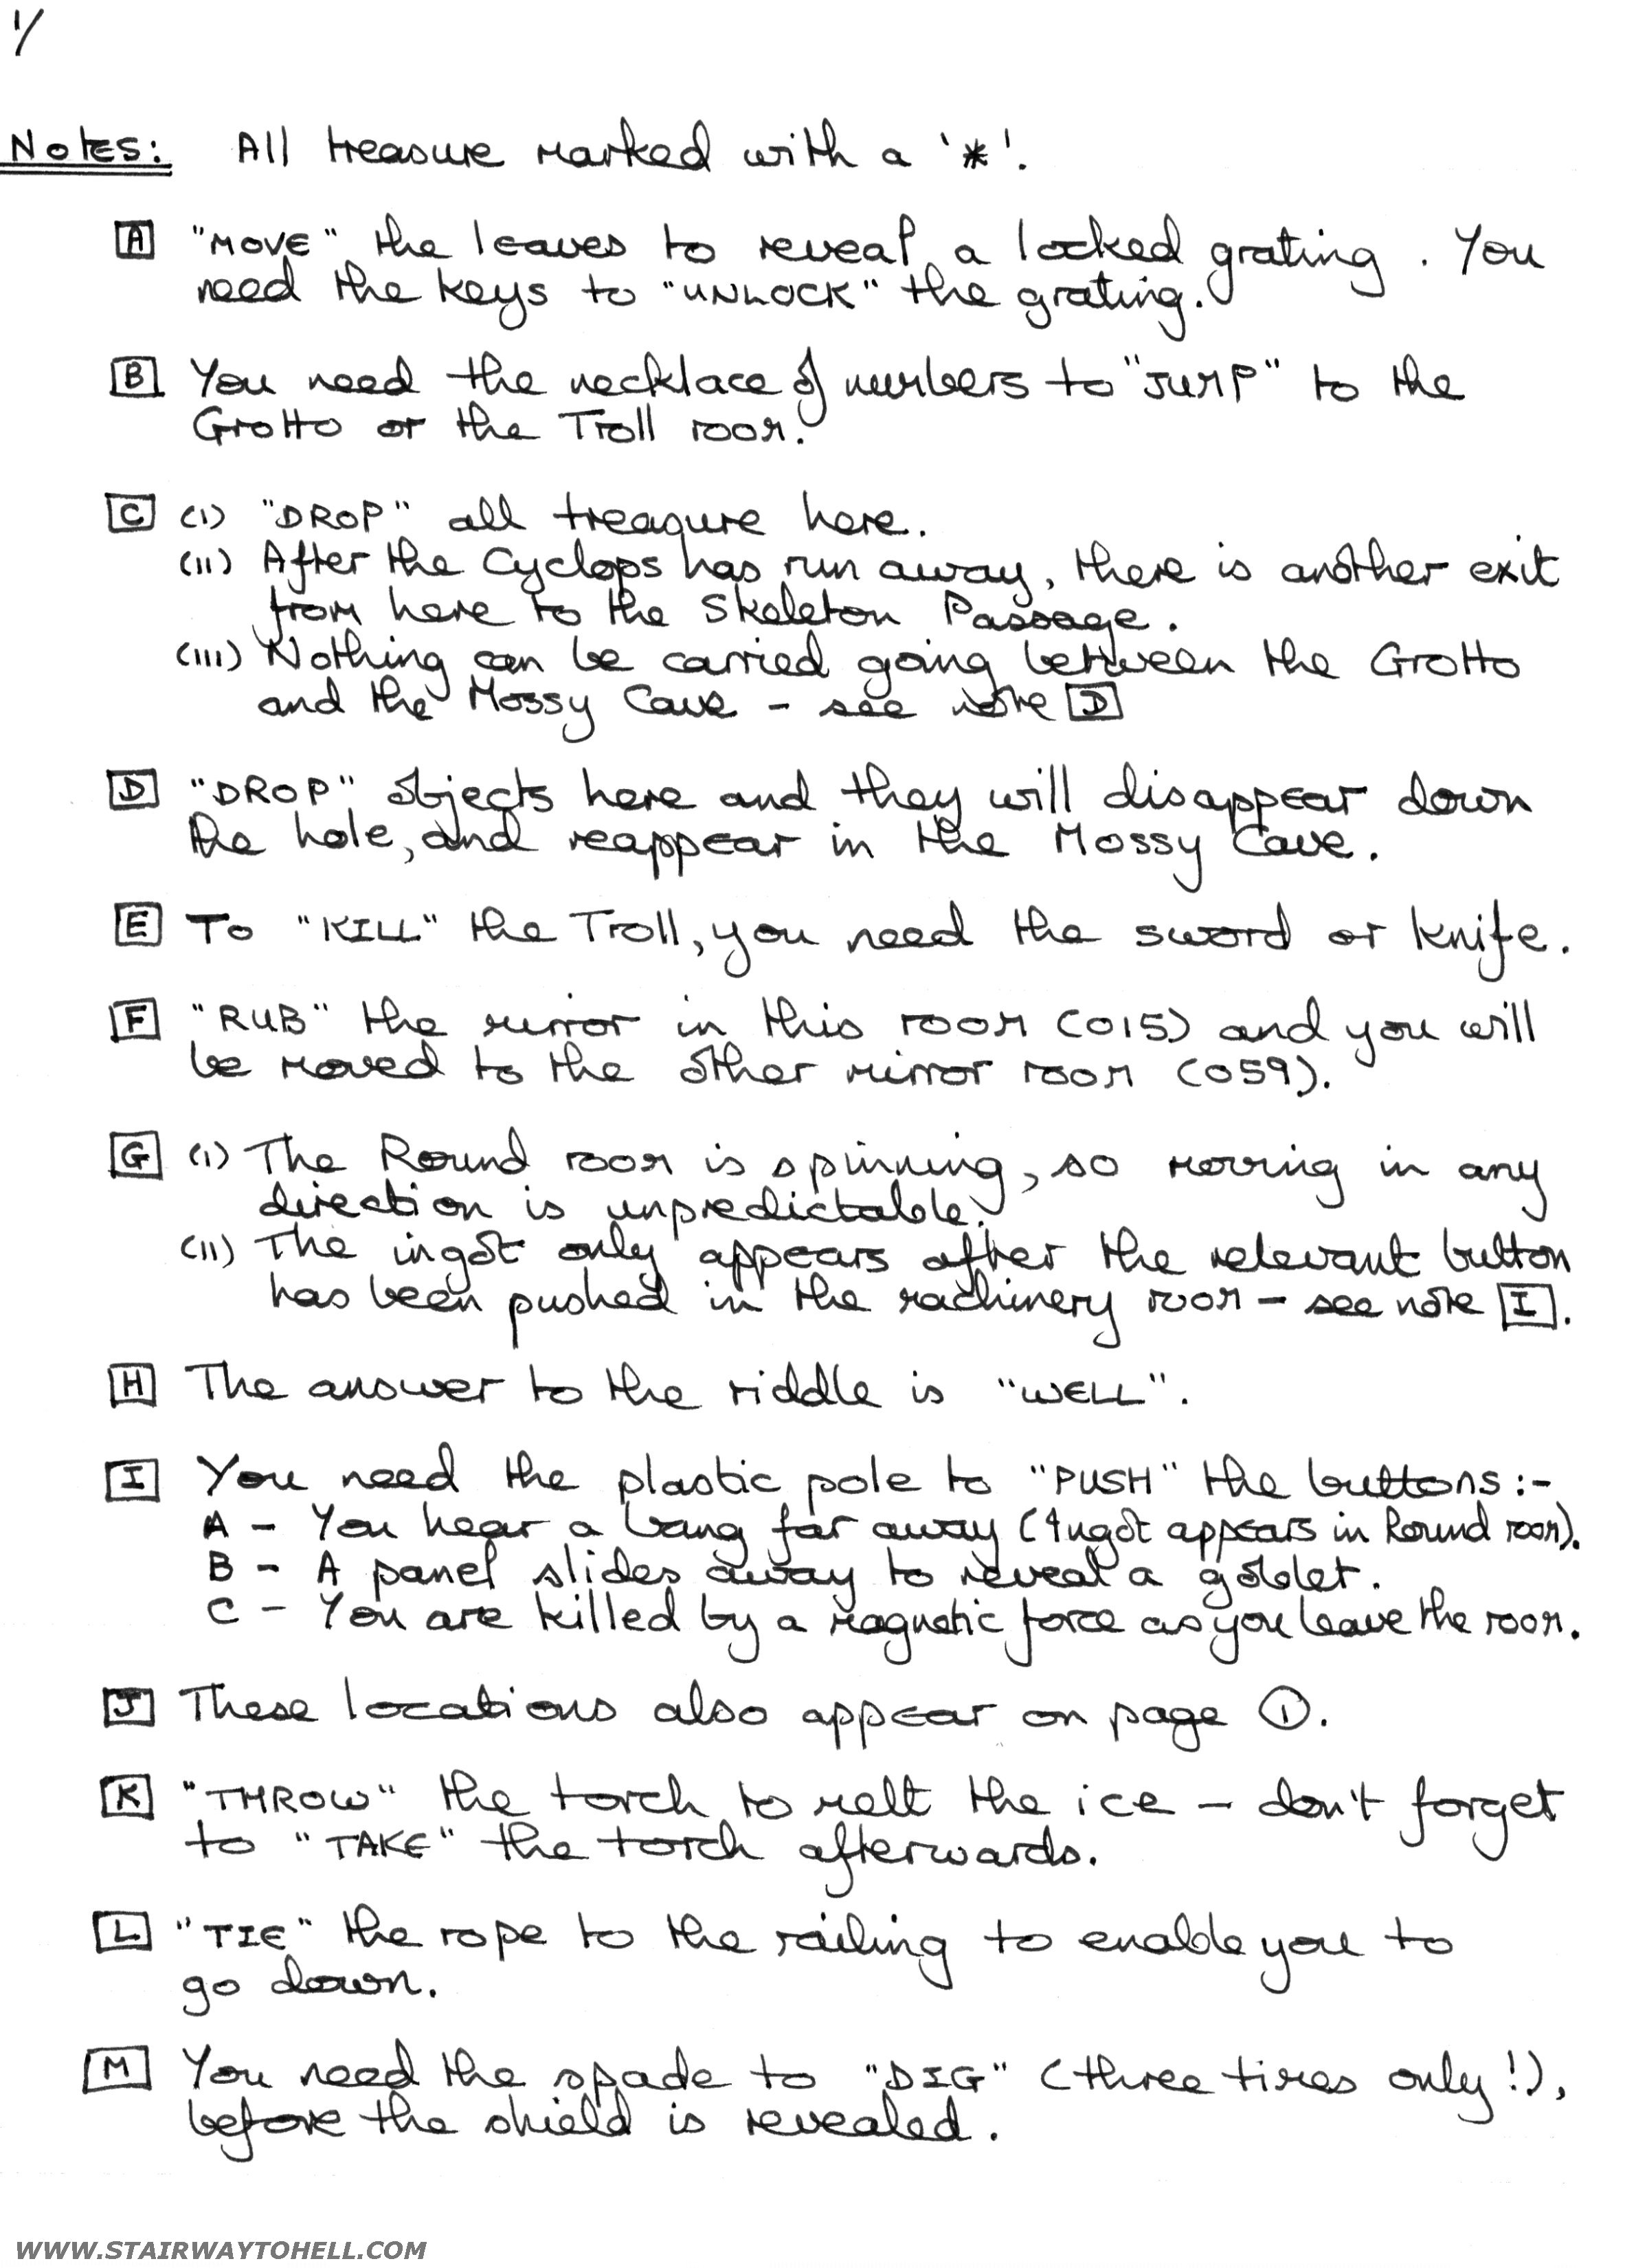 1/
Notes: All treasure marked with a '*'.
A "MOVE" the leaves to reveal a locked grating. You
need the keys to "UNLOCK" the grating.
B You need the necklace of numbers to "JUMP" to the
Grotto or the Troll room.
C (i) "DROP" all treasure here.
(ii) After the Cyclops has run away, there is another exit
from here to the Skeleton Passage.
(iii) Nothing can be carried going between the Grotto
and the Mossy Cave - see note D
D "DROP" objects here and they will disappear down
the hole, and reappear in the Mossy Cave.
E To "KILL" the Troll, you need the sword or knife.
F "RUB" the mirror in this room (015) and you will
be moved to the other mirror room (059).
G (i) The Round room is spinning, so moving in any
direction is unpredictable.
(ii) The ingot only appears after the relevant button
has been pushed in the machinery room - see note I.
H The answer to the riddle is "WELL".
I You need the plastic pole to "PUSH" the buttons:-
A - You hear a bang far away (Ingot appears in Round room).
B - A panel slides away to reveal a goblet.
C - You are killed by a magnetic force as you leave the room.
J These locations also appear on page ①.
K "THROW" the torch to melt the ice - don't forget
to "TAKE" the torch afterwards.
L "TIE" the rope to the railing to enable you to
go down.
M You need the spade to "DIG" (three times only!),
before the shield is revealed.
WWW.STAIRWAYTOHELL.COM